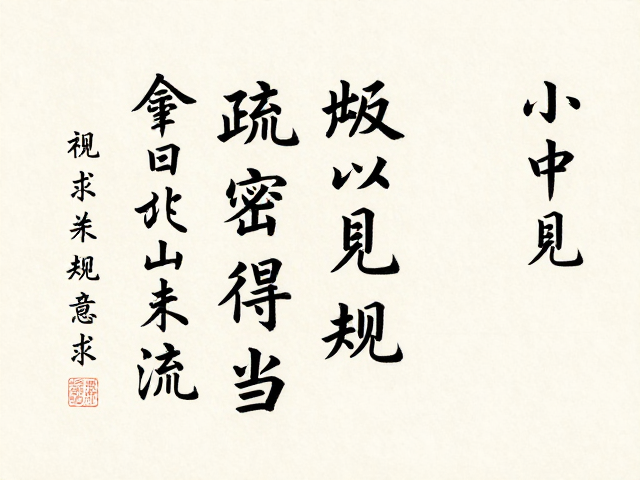 小中見
以見规
疏密得当
曰北山未流
視求规意求